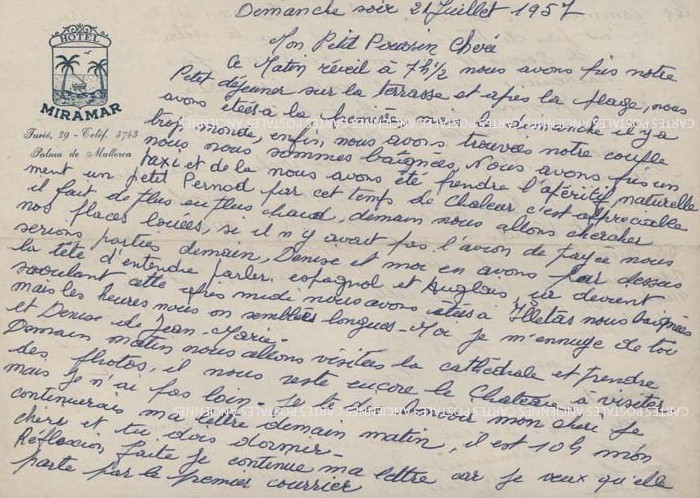 Demanche soir 21 Juillet 1957
HOTEL
MIRAMAR
29 - Teléf. 5743
Palma de Mallorca
Mon Petit Chéri
Ce Matin réveil à 7h 1/2 nous avons pris notre
Petit déjeuner sur la terrasse et après la plage, nous
avons étées à la mais le dimanche il y a
trop monde, enfin, nous avons trouvées notre couple
nous nous sommes baignées, Nous avons pris un
taxi, et de la nous avons été prendre l'apéritif naturelle
ment un petit Pernod par cet temps de Chaleur c'est appréciable
il fait de plus en plus chaud, demain nous allons chercher
nos places louées, si il n'y avait pas l'avion de payée nous
serions parties demain, Denise et moi en avons par dessus
la tête d'entendre parler espagnol et Anglais, ça devient
saoulant cette après midi nous avons étées à Illetas nous baignées
mais les heures nous on semblées longues - Moi je m'ennuge de toi
et Denise de Jean-Marie.
Demain matin nous allons visitées la cathédrale et prendre
des photos, il nous reste encore le Chateau a visiter
mais je n'ai pas loin - Je te dis bonsoir mon cheri je
continuerais ma lettre demain matin, il est 10h mon
cheri et tu dois dormir -
Réflexion faite je continue ma lettre car je veux qu'elle
parte par le premier courrier
CARTES POSTALES ANCIENNES